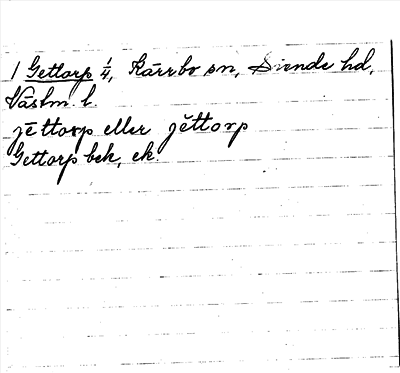 1 Gettorp 1/4, Kärrbo sn, Siende hd,
Västm. l.
jèttorp eller jèttorp
Gettorp bek, ek.